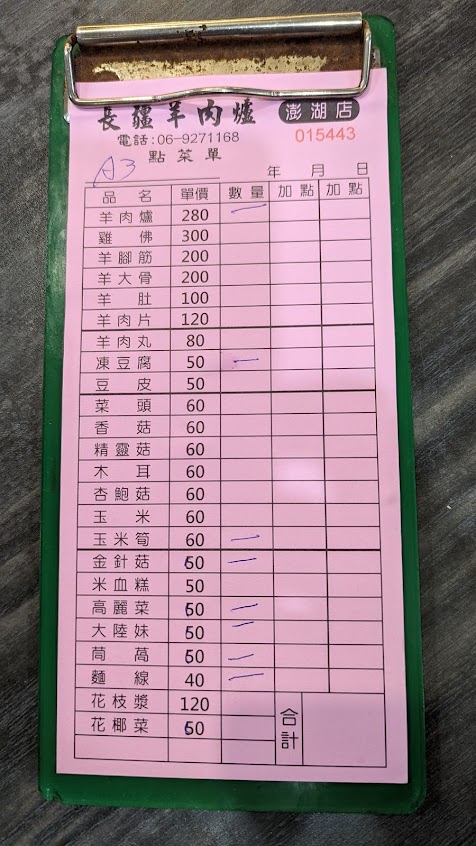 長疆羊肉爐 澎湖店
電話:06-9271168 015443
點菜單
A3 年 月 日
品名 單價 數量 加點 加點
羊肉爐 280 一
雞佛 300
羊腳筋 200
羊大骨 200
羊肚 100
羊肉片 120
羊肉丸 80
凍豆腐 50 一
豆皮 50
菜頭 60
香菇 60
精靈菇 60
木耳 60
杏鮑菇 60
玉米 60
玉米筍 60 一
金針菇 60 一
米血糕 50
高麗菜 60 一
大陸妹 60 一
茼萵 60 一
麵線 40 一
花枝漿 120
花椰菜 60
合計